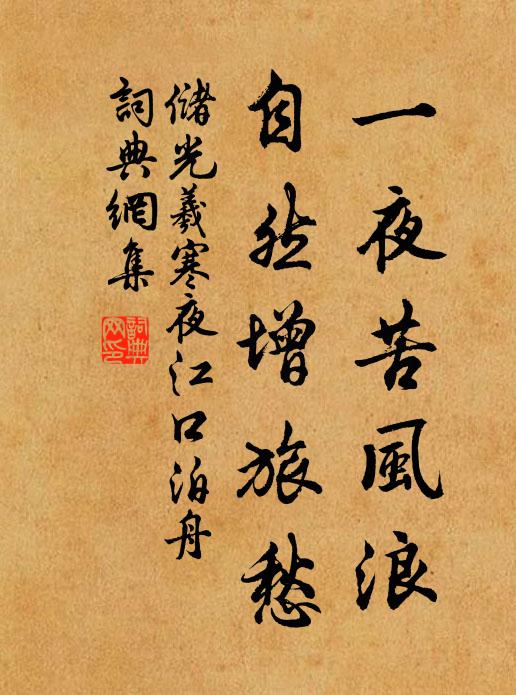 一夜苦風浪
自然增旅愁
儲光羲寒夜江口泊舟
詞典網集
詞典網印